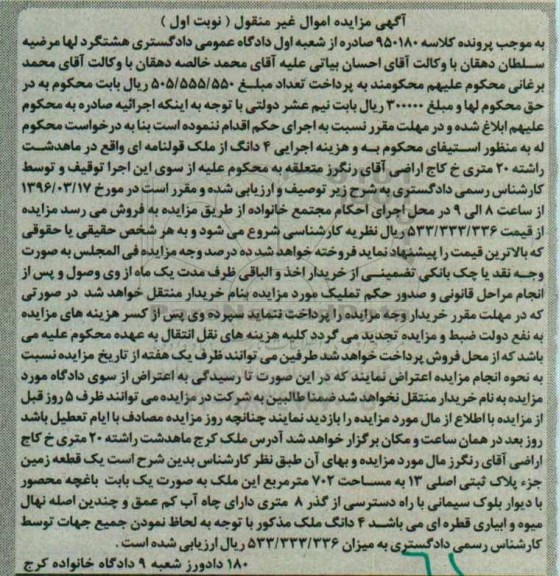 آگهی مزایده اموال غیر منقول ( نوبت اول )
به موجب پرونده کلاسه ۹۵۰۱۸۰ صادره از شعبه اول دادگاه عمومی دادگستری هشتگرد لها مرضیه
سلطان دهقان با وکالت آقای احسان بیاتی علیه آقای محمد خالصه دهقان با وکالت آقای محمد
برغانی محکوم علیهم محکومند به پرداخت تعداد مبلـغ ۵۰۵/۵۵۵/۵۵۰ ریال بابت محکوم به در
حق محکوم لها و مبلغ ۳۰۰۰۰۰ ریال بابت نیم عشر دولتی با توجه به اینکه اجرائیه صادره به محکوم
علیهم ابلاغ شده و در مهلت مقرر نسبت به اجرای حکم اقدام ننموده است بنا به درخواست محکوم
له به منظور استیفای محکوم بـه و هزینه اجرایی ۴ دانگ از ملک قولنامه ای واقع در ماهدشت
راشته ۲۰ متری خ کاج اراضی آقای رنگرز متعلقه به محکوم علیه از سوی این اجرا توقیف و توسط
کارشناس رسمی دادگستری به شرح زیر توصیف و ارزیابی شده و مقرر است در مورخ ۱۳۹۶/۰۳/۱۷
از ساعت ۸ الی ۹ در محل اجرای احکام مجتمع خانواده از طریق مزایده به فروش می رسد مزایده
از قیمت ۵۳۳/۳۳۳/۳۳۶ ریال نظریه کارشناسی شروع می شود و به هر شخص حقیقی یا حقوقی
که بالاترین قیمت را پیشنهاد نماید فروخته خواهد شد ده درصد وجه مزایده فی المجلس به صورت
وجـه نقد یا چک بانکی تضمینـی از خریدار اخذ و الباقی ظرف مدت یک ماه از وی وصول و پس از
انجام مراحل قانونی و صدور حکم تملیک مورد مزایده بنام خریدار منتقل خواهد شد در صورتی
که در مهلت مقرر خریدار وجه مزایده را پرداخت ننماید سپرده وی پس از کسر هزینه های مزایده
به نفع دولت ضبط و مزایده تجدید می گردد کلیه هزینه های نقل انتقال به عهده محکوم علیه می
باشد که از محل فروش پرداخت خواهد شد طرفین می توانند ظرف یک هفته از تاریخ مزایده نسبت
به نحوه انجام مزایده اعتراض نمایند که در این صورت تا رسیدگی به اعتراض از سوی دادگاه مورد
مزایده به نام خریدار منتقل نخواهد شد ضمنا طالبین به شرکت در مزایده می توانند ظرف ۵ روز قبل
از مزایده با اطلاع از مال مورد مزایده را بازدید نمایند چنانچه روز مزایده مصادف با ایام تعطیل باشد
روز بعد در همان ساعت و مکان برگزار خواهد شد آدرس ملک کرج ماهدشت راشته ۲۰ متری خ کاج
اراضی آقای رنگرز مال مورد مزایده و بهای آن طبق نظر کارشناس بدین شرح است یک قطعه زمین
جزء پلاک ثبتی اصلی ۱۳ به مسـاحت ۷۰۲ مترمربع این ملک به صورت یک بابت باغچه محصور
با دیوار بلوک سیمانی با راه دسترسی از گذر ۸ متری دارای چاه آب کم عمق و چندین اصله نهال
میوه و ابیاری قطره ای می باشـد ۴ دانگ ملک مذکور با توجه به لحاظ نمودن جمیع جهات توسط
کارشناس رسمی دادگستری به میزان ۵۳۳/۳۳۳/۳۳۶ ریال ارزیابی شده است.
۱۸۰ دادورز شعبه ۹ دادگاه خانواده کرج